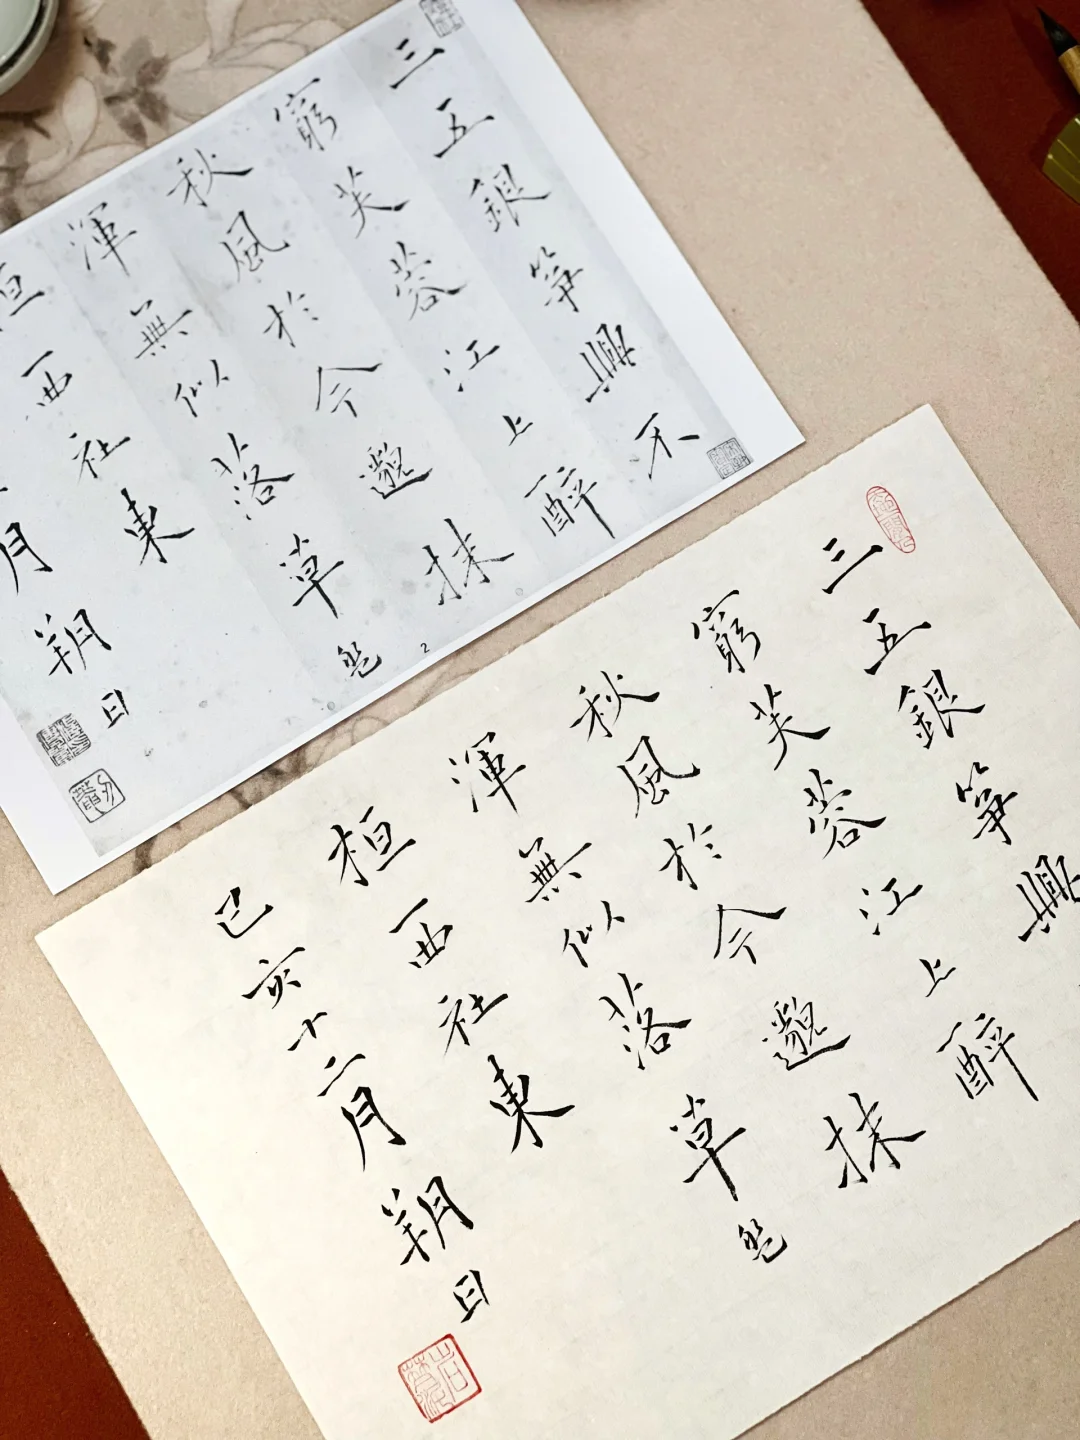 三五銀箏興不
窮芙蓉江上醉
秋風於今邈抹
渾無似落草
桓西社東
月朔日
2
三五銀箏興
窮芙蓉江上醉
秋風於今邈抹
渾無似落草
桓西社東
己亥十二月朔日